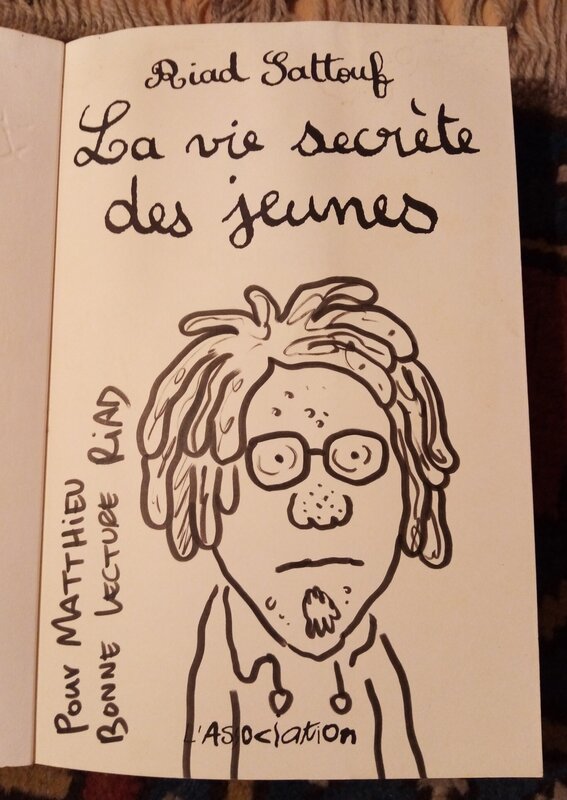 Riad Sattouf
La vie secrète
des jeunes
POUR MATTHIEU
BONNE LECTURE RiAD
L'Association